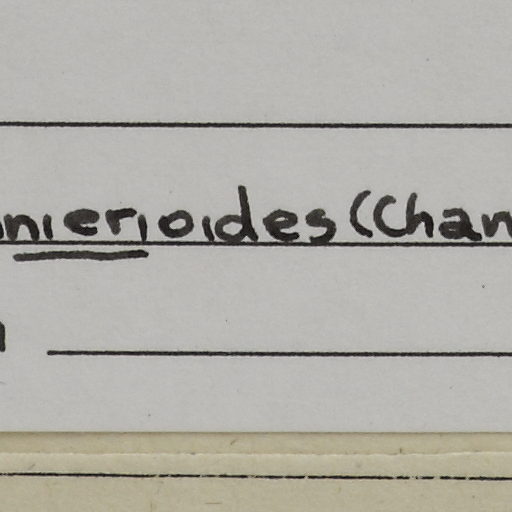 nierioides (Chan